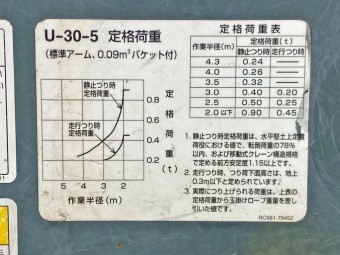 U-30-5 定格荷重
(標準アーム、0.09m³バケット付)
静止つり時
定格荷重
走行つり時
定格荷重
定格荷重(t)
0.8
0.6
0.4
0.2
5 4 3 2
作業半径(m)
定格荷重表
作業半径(m) 定格荷重(t)
静止つり時 走行つり時
4.3 0.24 —
4.0 0.26 —
3.5 0.32 —
3.0 0.40 0.20
2.5 0.50 0.25
2.0以下 0.90 0.45
1. 静止つり時定格荷重は、水平堅土上定置
荷役における値で、転倒荷重の78%
以内、および移動式クレーン構造規格
で定める前方安定度1.15以上です。
2. 走行つり時、つり荷下面高さは、地上
0.3m以下と定められています。
3. 実際につり上げられる荷重は、上表の
定格荷重から玉掛けロープ重量を差し
引いた値です。
RC661-79452